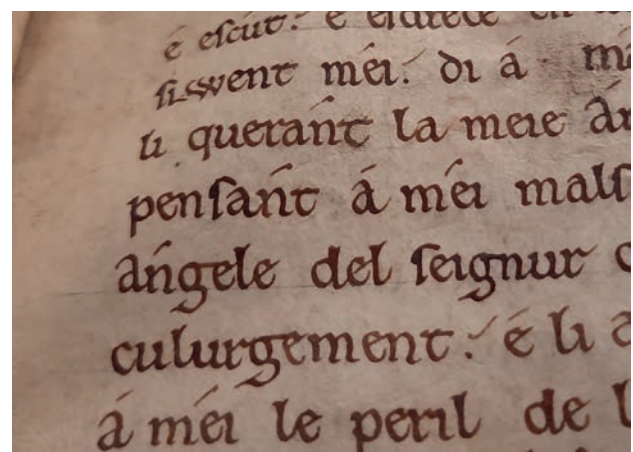 é eſcut: é
ſiwent méi. di á ma
li querańt la meie án
penſańt á méi malſ
ańgele del ſeignur c
culurgement: é li a
á méi le peril de l